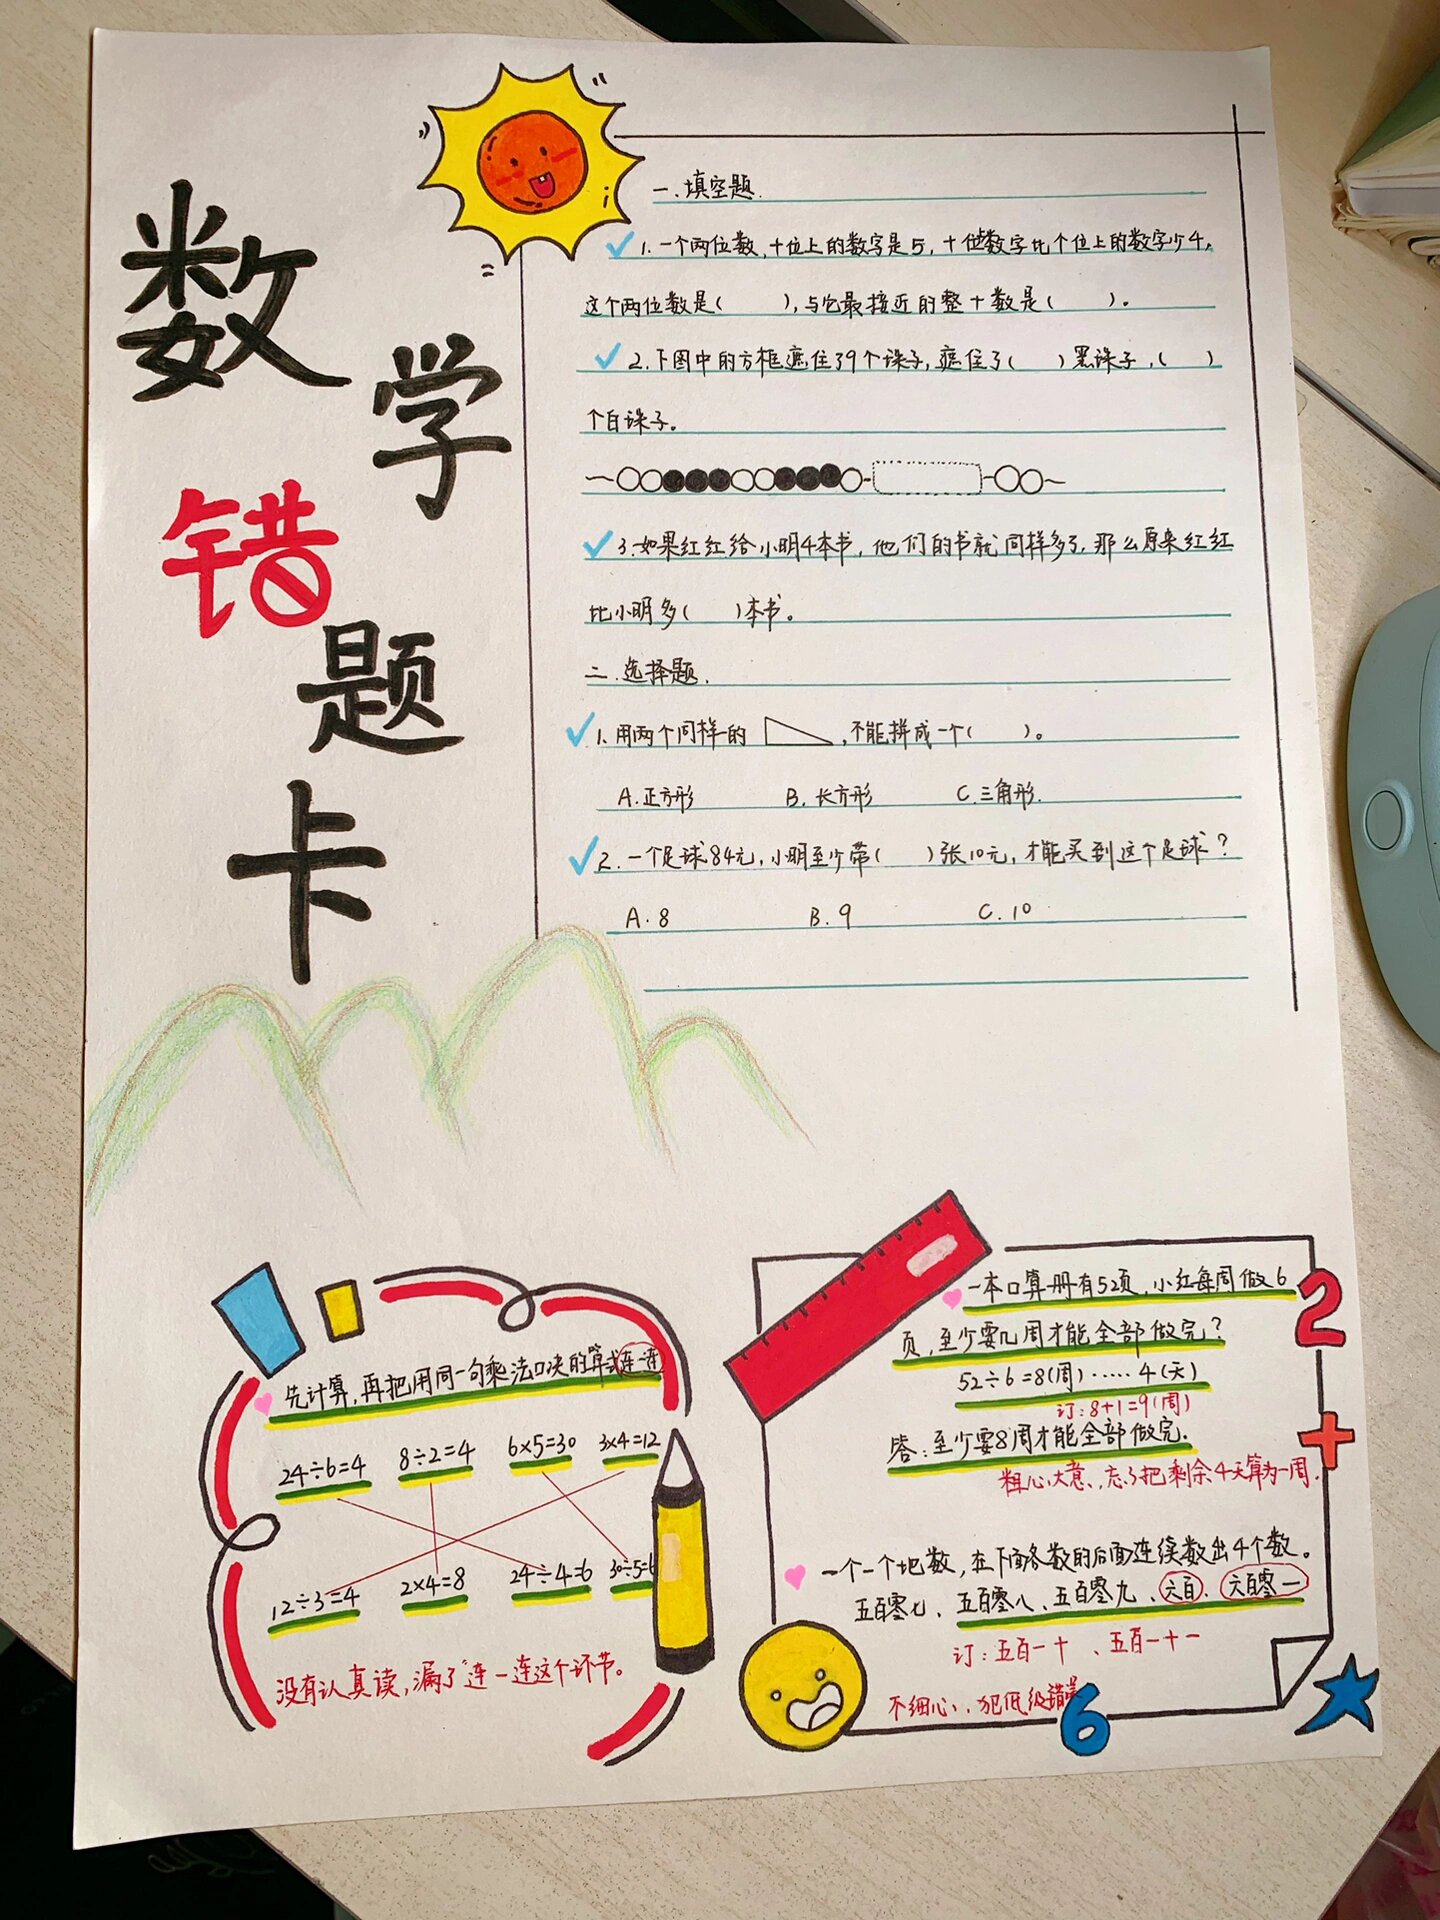 数学错题卡
一.填空题.
1.一个两位数,十位上的数字是5,十位数字比个位上的数字少4,
这个两位数是(    ),与它最接近的整十数是(    )。
2.下图中的方框遮住了9个珠子,遮住了(    )黑珠子,(    )
个白珠子。
3.如果红红给小明4本书,他们的书就同样多了,那么原来红红
比小明多(    )本书。
二.选择题.
1.用两个同样的,不能拼成一个(    )。
A.正方形 B.长方形 C.三角形.
2.一个足球84元,小明至少带(    )张10元,才能买到这个足球?
A.8 B.9 C.10
先计算,再把用同一句乘法口决的算式连一连
24÷6=4 8÷2=4 6×5=30 3×4=12
12÷3=4 2×4=8 24÷4=6 30÷5=6
没有认真读,漏了“连一连这个环节。
一本口算册有52页,小红每周做6
页,至少要几周才能全部做完?
52÷6=8(周)……4(天)
订:8+1=9(周)
答:至少要8周才能全部做完.
粗心大意,忘了把剩余4天算为一周.
一个一个地数,在下面各数的后面连续数出4个数。
五百零七、五百零八、五百零九、六百、六百零一
订:五百一十、五百一十一
不细心,犯低级错
2
+
6